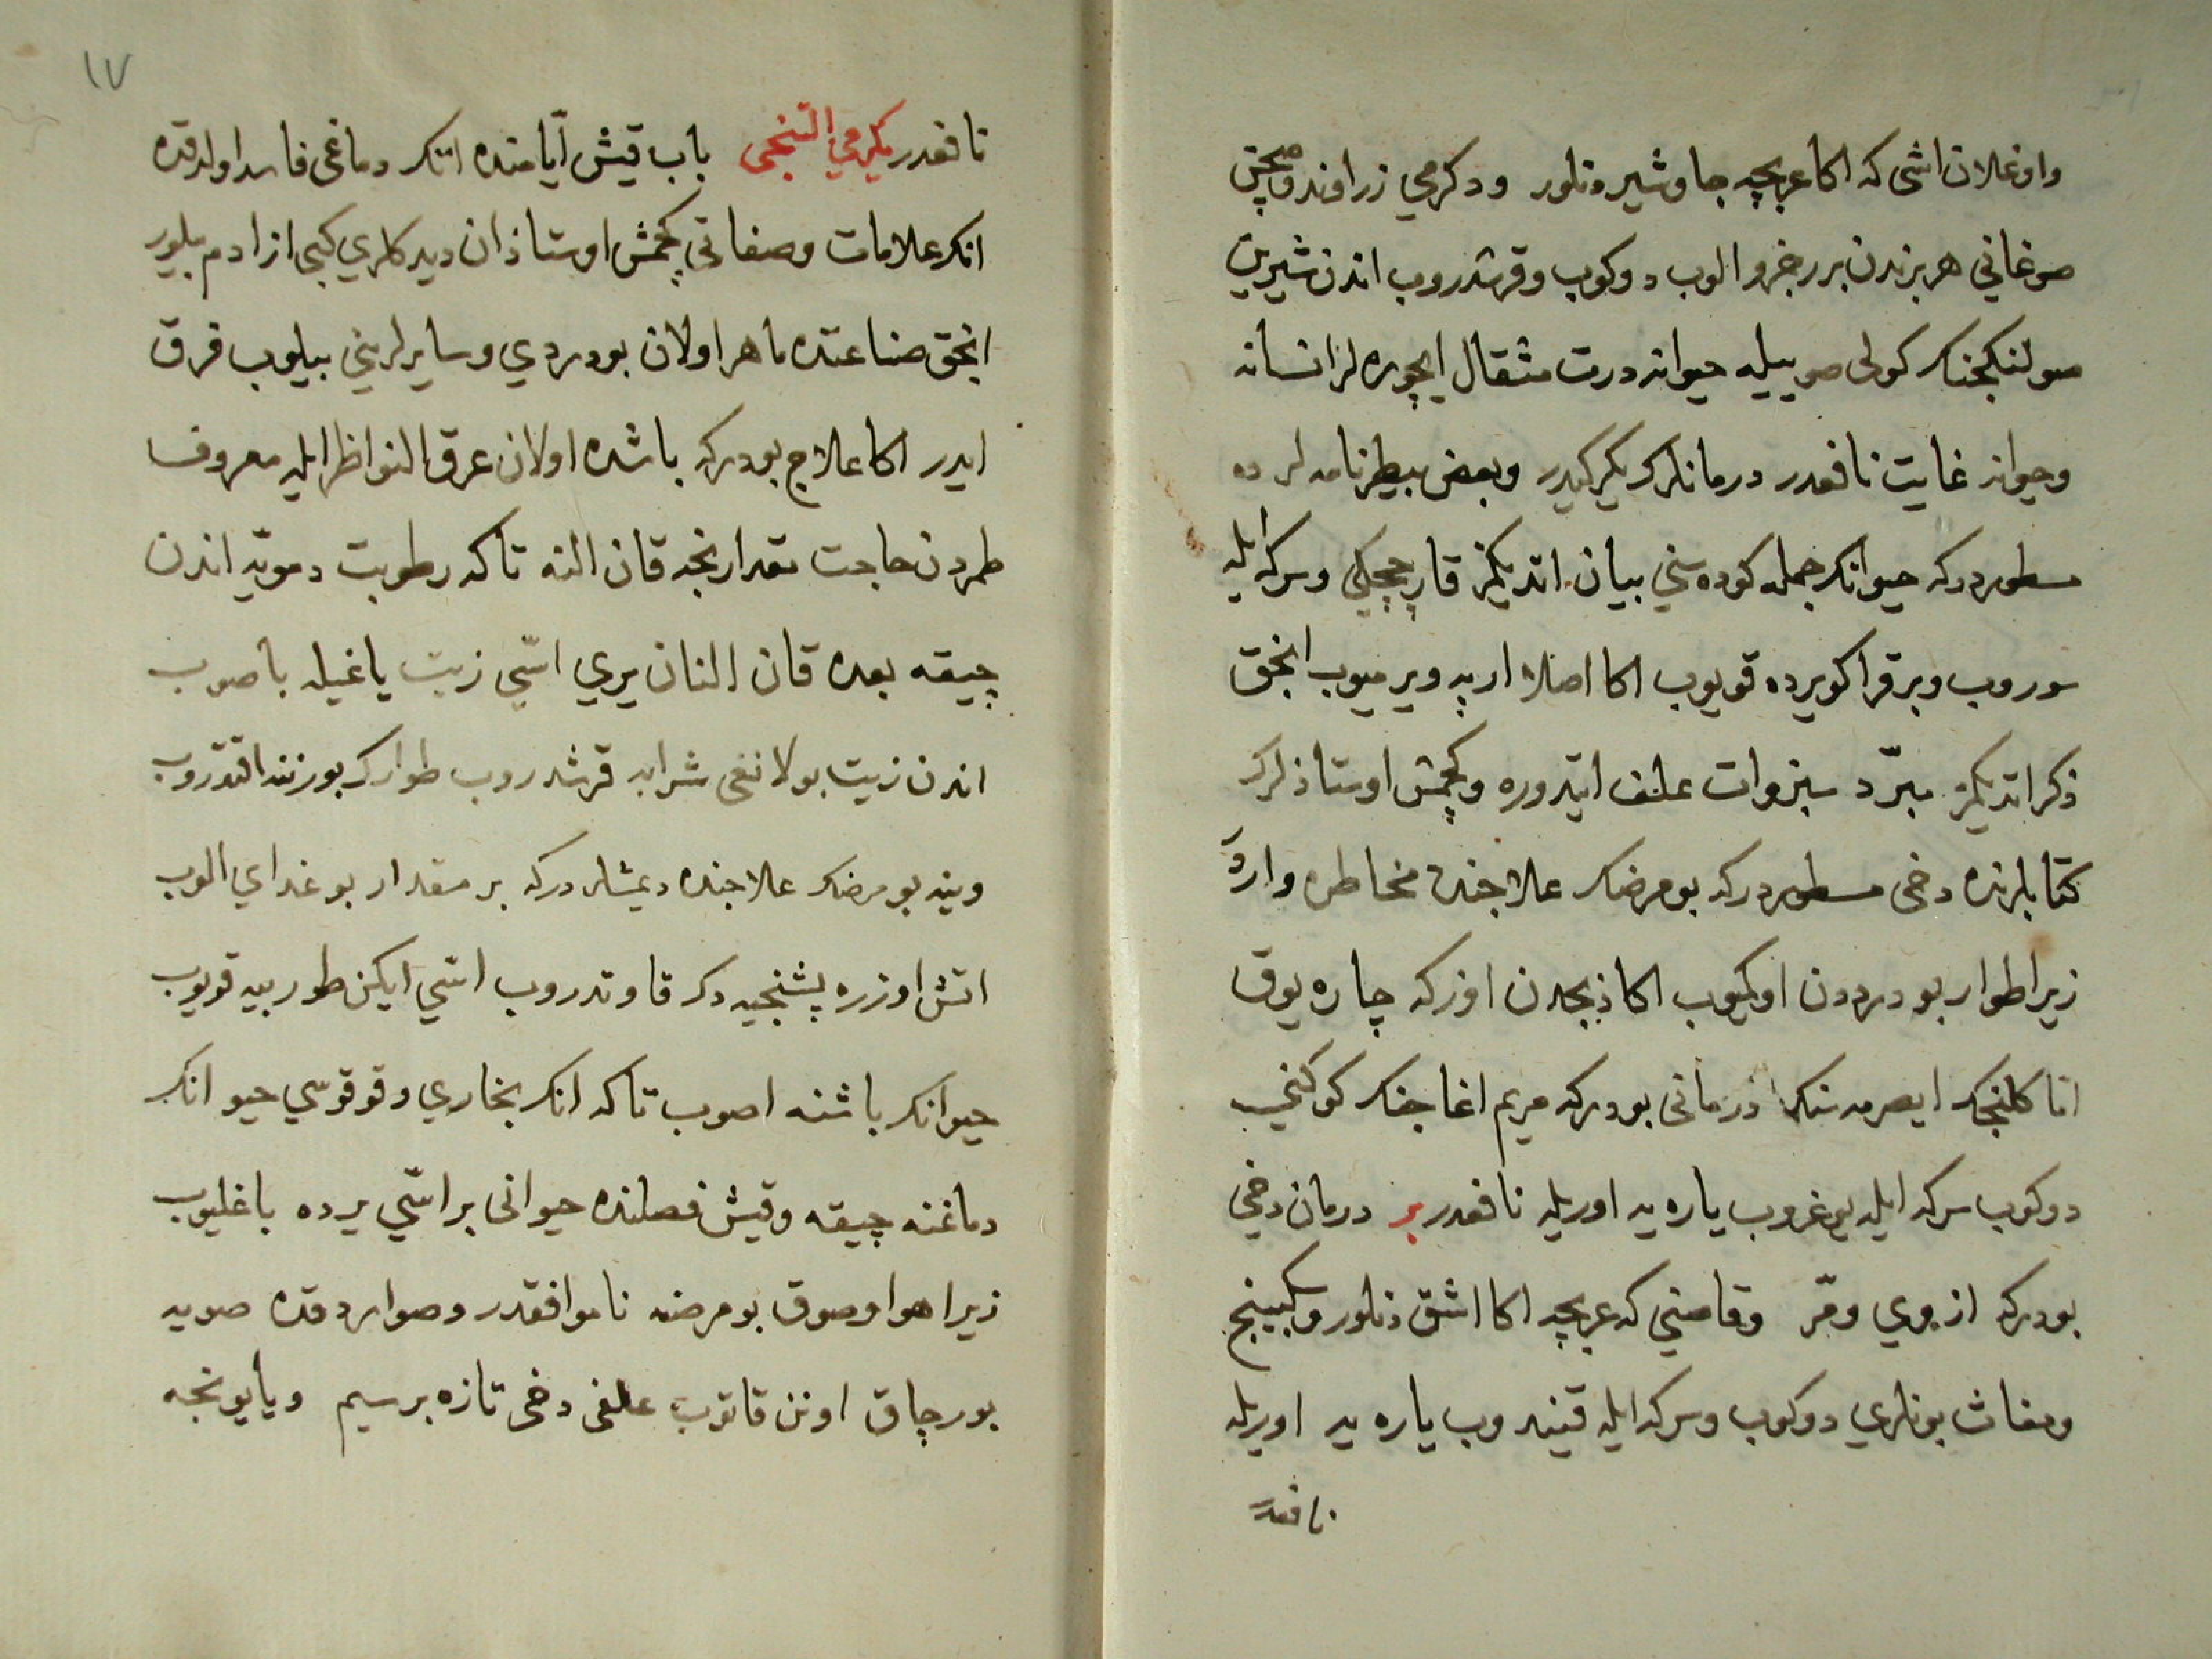 واوغلان اشی که اکا عربچه جاوشیر دنلور ودکرمي زراوند وقچمش
صوغاني هر بزندن برر جزو الوب دوکوب وقرشدروب اندن شیرین
صولنکجنك کولی صوییله حیوانه درت مثقال ایچوره لر انسانه
وحیوانه غایت نافعدر درمانلرك یکیرکیدر وبعض بیطرنامه لر ده
مسطوردرکه حیوانك جمله کوده سني بیان اتدیکمز قار چیچکي وسرکه ایله
سوروب وبر قراکو یرده قویوب اکا اصلا ارپه ویرمیوب انجق
ذکر اتدیکمز مبرّد سبزوات علف ایتدوره وکچمش اوستاذلرك
کتابلرنده دخی مسطوردرکه بو مرضك علاجنده مخاطره واردر
زیرا طوار بو درددن اوکیوب اکا ذبحدن اوزکه چاره یوق
اما کلنجك ایصرمه سنك درمانی بودرکه مریم اغاجنك کوکنی
دوکوب سرکه ایله یوغروب یاره یه اوریله نافعدر بر درمان دخی
بودرکه ازوي ومرّ وقاصني که عربچه اکا اشق دنلور وسکبینج
ومغاث بونلري دوکوب وسرکه ایله قیندروب یاره یه اوریله
نافعدر
١٧
نافعدر یکرمي التنجی باب قیش ایّامنده اتك دماغی فاسد اولدقده
انك علامات وصفاتی کچمش اوستاذان دیدکلري کبی از ادم بلور
انجق صناعتده ماهر اولان بو دردي وسایرلریني بیلوب فرق
ایدر اکا علاج بودرکه باشده اولان عرق النواظر ایله معروف
طمردن حاجت مقدارنجه قان النه تاکه رطوبت دمویّه اندن
چیقه بعده قان النان یري اسّي زیت یاغیله باصوب
اندن زیت بولانغی شرابه قرشدروب طوارك بورننه اقتدروب
وینه بو مرضك علاجنده دیمشلردرکه بر مقدار بوغداي الوب
اتش اوزره پشنجیه دك قاوندروب اسّي ایکن طوربیه قویوب
حیوانك باشنه اصوب تاکه انك بخاري وقوقوسي حیوانك
دماغنه چیقه وقیش فصلنده حیوانی بر اسّي یرده باغلیوب
زیرا هوا وصوق بو مرضه ناموافقدر وصواردقده صویه
بورچاق اونن قاتوب علفی دخی تازه برسیم ویا یونجه